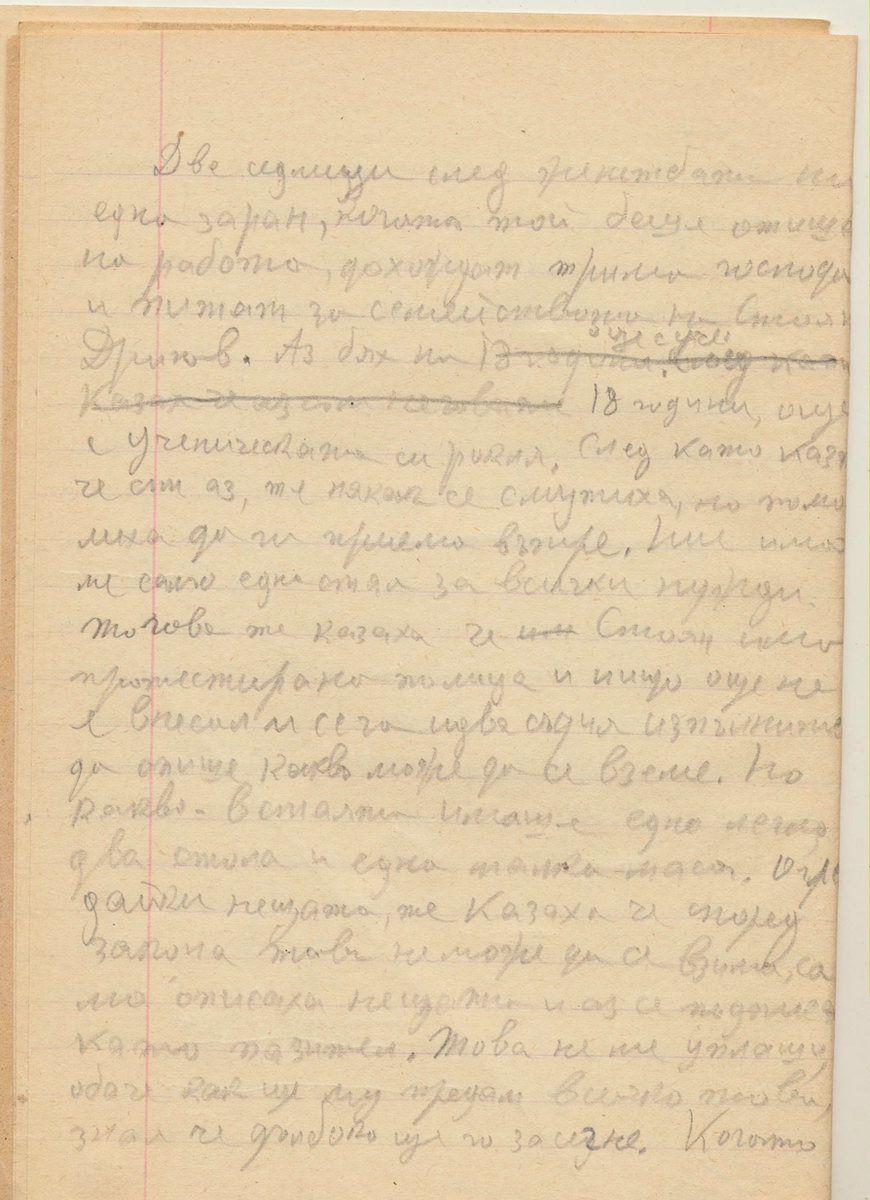 Две седмици след женитбата ни
една заран, когато той беше отишъл
на работа, дохождат трима господа
и питат за семейството на Стоян
Дринов. Аз бях на 18 години. След като
казах че аз съм неговата 18 години, още
с ученическата си рокля. След като казах
че съм аз, те някак се смутиха, но помо
лиха да ги приема вътре. Ние имах
ме само една стая за всички нужди.
тогава те казаха че Стоян има
протестирана полица и нищо още не
е внесъл и сега идва съдия изпълнител
да опише какво може да се вземе. Но
какво - в стаята имаше едно легло
два стола и една малка маса. Огле
дайки нещата, те казаха че според
закона това не може да се взима, са
мо описаха нещата и аз се подписах
като пазител. Това не ме уплаши,
обаче как ще му предам всичко това,
зная че дълбоко ще го засегне. Когато